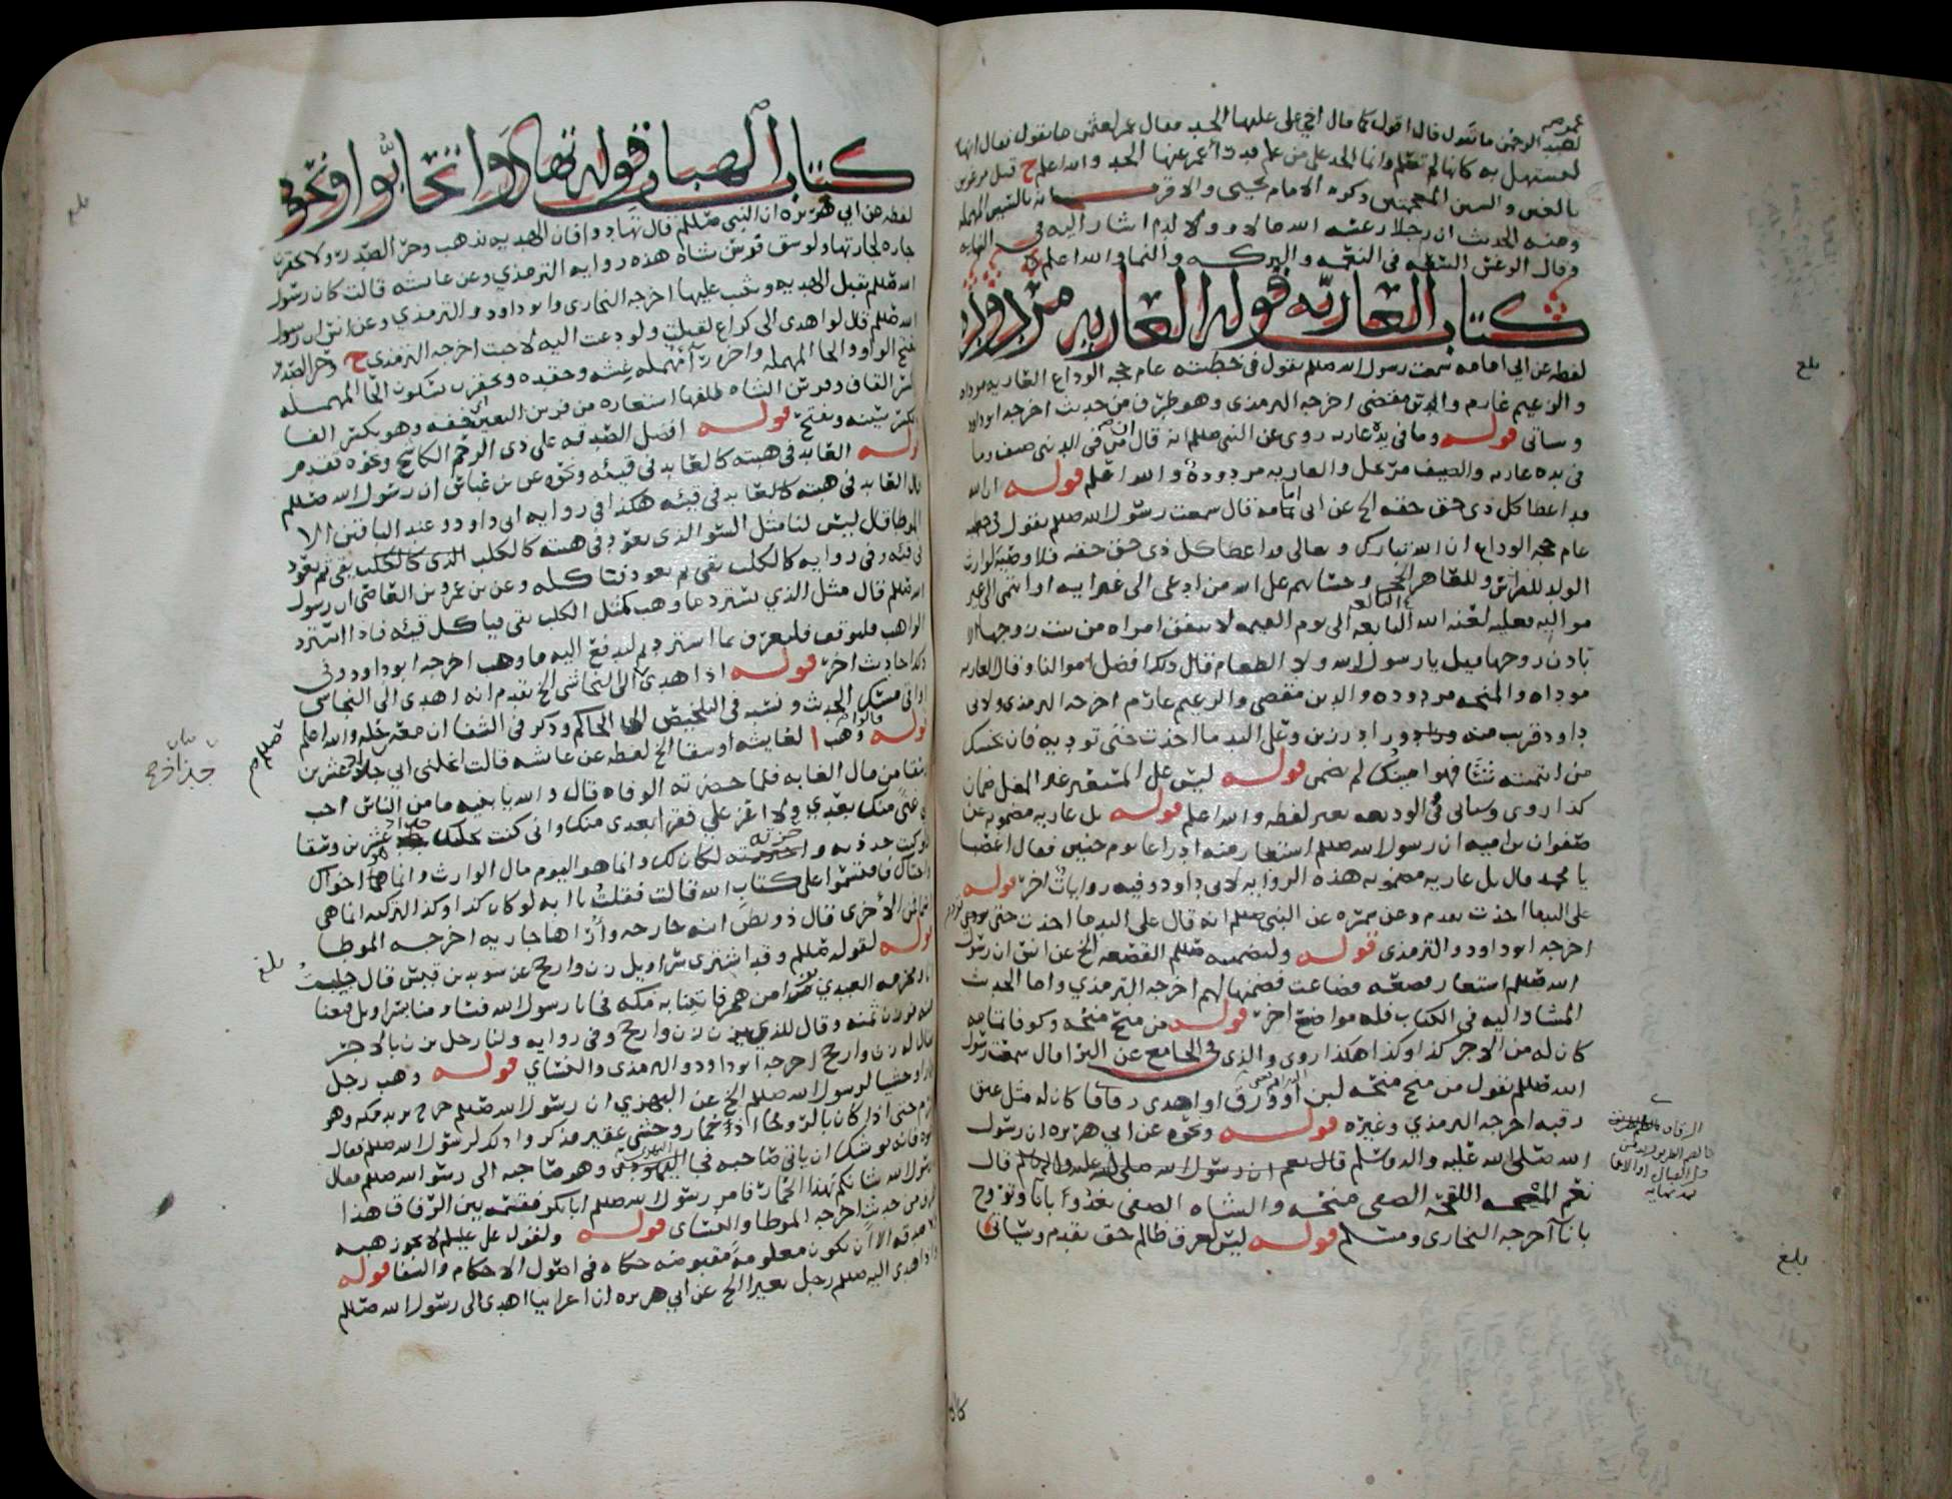 لعبد الرحمن ما تقول قال اقول كما قال اخي علي عليها الحد فقال عمر لعثمن ما تقول فقال انها
لتستهل به كانها لم تعلم وانما الحد على من علم فدرأ عمر عنها الحد والله اعلم ح قيل مرغوس
بالغين والسين المعجمتين ذكره الامام يحيى والاقرب انه بالسين المهمله
ومنه الحديث ان رجلا رغسه الله مالا وولدا اشار اليه في النهايه
وقال الرغس السعه في النعمه والبركه والنما والله اعلم
كتاب العاريه قوله العاريه مردوده
لفظه عن ابي امامه سمعت رسول الله صللم يقول في خطبته عام حجه الوداع العاريه موداه
والزعيم غارم والدين مقضي اخرجه الترمذي وهو طرف من حديث اخرجه ابو داود
وساتي قوله وما في يده عاريه روي عن النبي صللم انه قال من في الدنيا ضيف وما
في يده عاريه والضيف مرتحل والعاريه مردودة والله اعلم قوله ان الله
قد اعطا كل ذي حق حقه الخ عن ابي امامه قال سمعت رسول الله صللم يقول في خطبته
عام حجه الوداع ان الله تبارك وتعالى قد اعطا كل ذي حق حقه فلا وصيه لوارث
الولد للفراش وللعاهر الحجر وحسابهم على الله من ادعى الى غير ابيه او انتمى الى غير
مواليه فعليه لعنه الله التابعه الى يوم القيمه لا تنفق امراه من بيت زوجها الا
باذن زوجها قيل يا رسول الله ولا الطعام قال ذلك افضل اموالنا وقال العاريه
موداه والمنحه مردوده والدين مقضي والزعيم غارم اخرجه الترمذي ولابي
داود قريب منه وزاد رزين وعلى اليد ما اخذت حتى توديه
من ائتمنته شيا فهو امينك لم يضمن قوله ليس على المستعير غير المغل ضمان
كذا روي وساتي في الوديعه بغير لفظه والله اعلم قوله بل عاريه مضمونه عن
صفوان بن اميه ان رسول الله صللم استعار منه ادراعا يوم حنين فقال اغصبا
يا محمد قال بل عاريه مضمونه هذه الروايه لابي داود وفيه روايات اخر قوله
على اليد ما اخذت تقدم وعن سمره عن النبي صللم انه قال على اليد ما اخذت حتى تودي
اخرجه ابو داود والترمذي قوله ولتضمينه صللم القصعه الخ عن انس ان رسول
الله صللم استعار قصعه فضاعت فضمنها لهم اخرجه الترمذي واما الحديث
المشار اليه في الكتاب فله مواضع اخر قوله من منح منحه وكوفا تامه
كان له من الاجر كذا وكذا هكذا روي والذي في الجامع عن البرا قال سمعت رسول
الله صللم يقول من منح منحه لبن او ورق او اهدى زقاقا كان له مثل عتق
رقبه اخرجه الترمذي وغيره قوله ونحوه عن ابي هريره ان رسول
الله صلى الله عليه واله وسلم قال نعم ان رسول الله صلى الله عليه واله وسلم قال
نعم المنيحه اللقحه الصفي منحه والشاه الصفي تغدوا بانا وتروح
بانا اخرجه البخاري ومسلم قوله ليس لعرق ظالم حق تقدم وسياتي
بلغ
بلغ
كتاب الهبات قوله تهادوا تحابوا ونحوه
لفظه عن ابي هريره ان النبي صللم قال تهادوا فان الهديه تذهب وحر الصدر ولا تحقرن
جاره لجارتها ولو شق فرسن شاه هذه روايه الترمذي وعن عائشه قالت كان رسول
الله صللم يقبل الهديه ويثيب عليها اخرجه البخاري وابو داود والترمذي وعن انس ان رسول
الله صللم قال لو اهدي الي كراع لقبلت ولو دعيت اليه لاجبت اخرجه الترمذي ح وحر الصدر
بفتح الواو والحا المهمله واخره را مهمله غشه وحقده وتحقرن بسكون الحا المهمله
وكسر القاف وفرسن الشاه ظلفها استعاره من فرسن البعير خفه وهو بكسر الفا
قوله افضل الصدقه على ذي الرحم الكاشح ونحوه تقدم
قوله العايد في هبته كالعايد في قيئه ونحوه عن بن عباس ان رسول الله صللم
قال العايد في هبته كالعايد في قيئه هكذا في روايه ابي داود وعند الباقين الا
الموطا قال ليس لنا مثل السو الذي يعود في هبته كالكلب يقي ثم يعود
في قيئه وفي روايه كالكلب يقي ثم يعود فياكله وعن بن عمرو بن العاص ان رسول
الله صللم قال مثل الذي يسترد ما وهب كمثل الكلب يقي فياكل قيئه فاذا استرد
الواهب فليوقف فليعرف بما استرد ثم ليدفع اليه ما وهب اخرجه ابو داود وفي
ذلك احاديث اخر قوله اذا اهدى الى النجاشي الخ تقدم انه اهدى الى النجاشي
اواقي مسك الحديث ونسبه في التلخيص الى الحاكم وذكر في الشفا ان معه حله والله اعلم
قوله وهب لعايشه اوسقا الخ لفظه عن عائشه قالت نحلني ابي جاد عشرين
وسقا من مال الغابه فلما حضرته الوفاه قال والله يا بنيه ما من الناس احب
الي غنى منك بعدي ولا اعز علي فقرا بعدي منك واني كنت نحلتك جاد عشرين وسقا
فلو كنت جددته واحتزته لكان لك وانما هو اليوم مال الوارث وانما هما اخواك
واختاك فاقتسموا على كتاب الله قالت فقلت يا ابه لو كان كذا وكذا لتركته انما هي
اسما فمن الاخرى فقال ذو بطن ابنه خارجه واراها جاريه اخرجه الموطا
قوله لقوله صللم وقد اشترى سراويل زن وارجح عن سويد بن قيس قال جلبت
انا ومخرمه العبدي بزا من هجر فاتينا به مكه فجانا رسول الله فساومنا سراويل فبعنا
منه فوزن ثمنه وقال للذي يزن زن وارجح وفي روايه ولنا رجل يزن بالاجر
فقال له زن وارجح اخرجه ابو داود والترمذي والنساي قوله وهب رجل
حمارا وحشيا لرسول الله صللم الخ عن البهزي ان رسول الله صللم خرج يريد مكه وهو
محرم حتى اذا كان بالروحا اذا حمار وحشي عقير فذكروا ذلك لرسول الله صللم فقال
دعوه فانه يوشك ان ياتي صاحبه فجا البهزي وهو صاحبه الى رسول الله صللم فقال
يا رسول الله شانكم بهذا الحمار فامر رسول الله صللم ابا بكر فقسمه بين الرفاق هذا
طرف من حديث اخرجه الموطا والنساي قوله ولقول علي عليلم لا تجوز هبه
ولا صدقه الا ان تكون معلومه مقبوضه حكاه في اصول الاحكام والشفا قوله
واذا اهدى اليه صللم رجل بعيرا الخ عن ابي هريره ان اعرابيا اهدى الى رسول الله صللم
بلغ